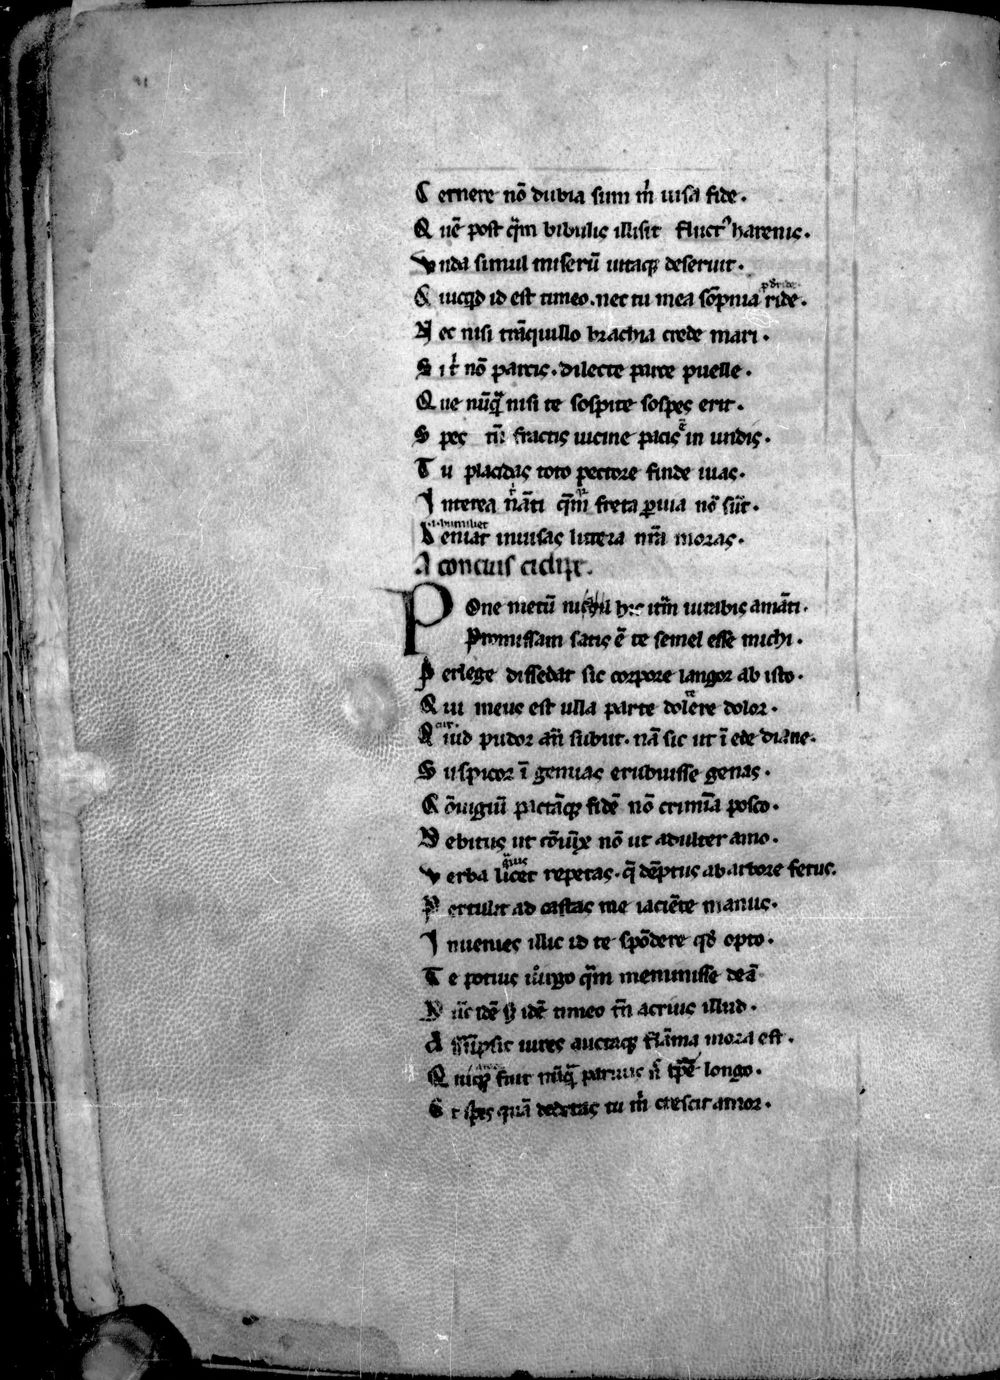 C ernere nō dubia sum m̄ uisa fide.
Q uē post q̄m bibulis illisit fluct᾽ harenis.
V nda simul miserū uitaq; deseruit.
Q uicqd id est timeo. nec tu mea sōpnia ride.
N ec nisi trāquillo brachia crede mari.
S i t̄ nō parcis. dilecte parce puelle.
Q ue nūq̄ nisi te sospite sospes erit.
S pes tn̄ fractis uicine pacis ē in undis.
T u placidas toto pectore finde uias.
I nterea nāti q̄m freta ꝑuia nō sūt.
L eniat inuisas littera nr̄a moras.
A concius cidipe.
P One metū nichil hic itm̄ iurabis amāti.
Promissam satis ē te semel esse michi.
P erlege dissedat sic corpore langor ab isto.
Q ui meus est ulla parte dolere dolor.
Q uid pudor an̄ subit. nā sic ut ī ede diane.
S uspicor ī genuas erubuisse genas.
C ōiugiū pactāq; fidē nō crimīa posco.
D ebitus ut cōiūx nō ut adulter amo.
V erba licet repetas. q̄ dēptus ab arbore fetus.
P ertulit ad castas me iaciēte manus.
I nuenies illic id te spōdere qd̄ opto.
T e potius uirgo q̄m meminisse deā
N ūc idē idē timeo sn̄ acrius illud.
A ssūpsit uires auctaq; flāma mora est.
Q uiq; fuit nūq̄ paruus n̄ tp̄e longo.
E t spes quā dederas tu m̄ crescit amor.